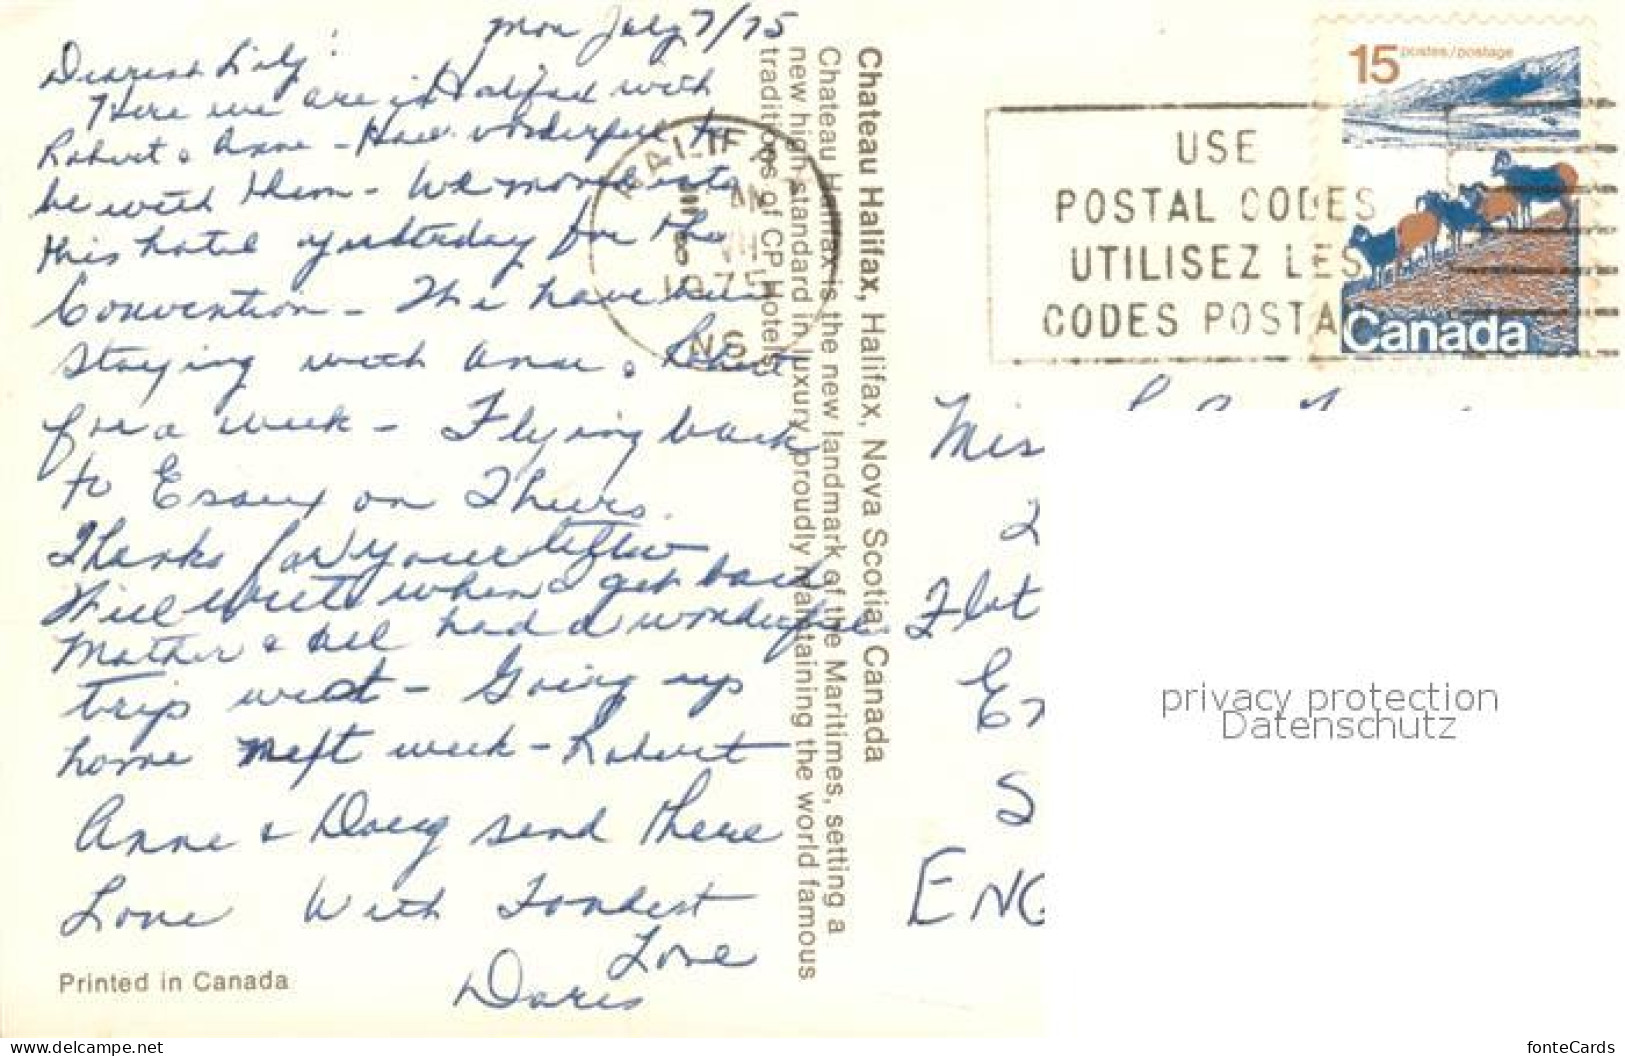 Mon July 7/75
Dearest Lily:
Here we are in Halifax with
Robert & Anne - How wonderful to
be with them - We moved into
this hotel yesterday for the
Convention - have been
staying with Anne & Robert
for a week - Flying back
to on Thurs.
Thanks for your letter
Will write when I get back
Mother & had a wonderful
trip west - Going up
home next week - Robert
Anne & Doug send there
Love With Fondest
Love
Doris
Printed in Canada
Chateau Halifax, Halifax, Nova Scotia, Canada
Chateau Halifax is the new landmark of the Maritimes, setting a
new high standard in luxury, proudly maintaining the world famous
traditions of CP Hotels.
HALIFAX
8
1975
NS
USE
POSTAL CODES
UTILISEZ LES
CODES POSTA
15 postes/postage
Canada
Mis
2
Flat
S
ENG
privacy protection
Datenschutz
www.delcampe.net
fonteCards